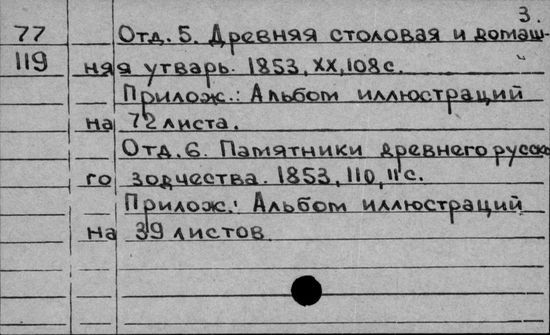 3.
77 Отд. 5. Древняя столовая и домаш-
119 няя утварь. 1853, XX, 108 с.
Прилож.: Альбом иллюстраций
на 72 листа.
Отд. 6. Памятники древнего русско
го зодчества. 1853, 110, II с.
Прилож.: Альбом иллюстраций
на 39 листов